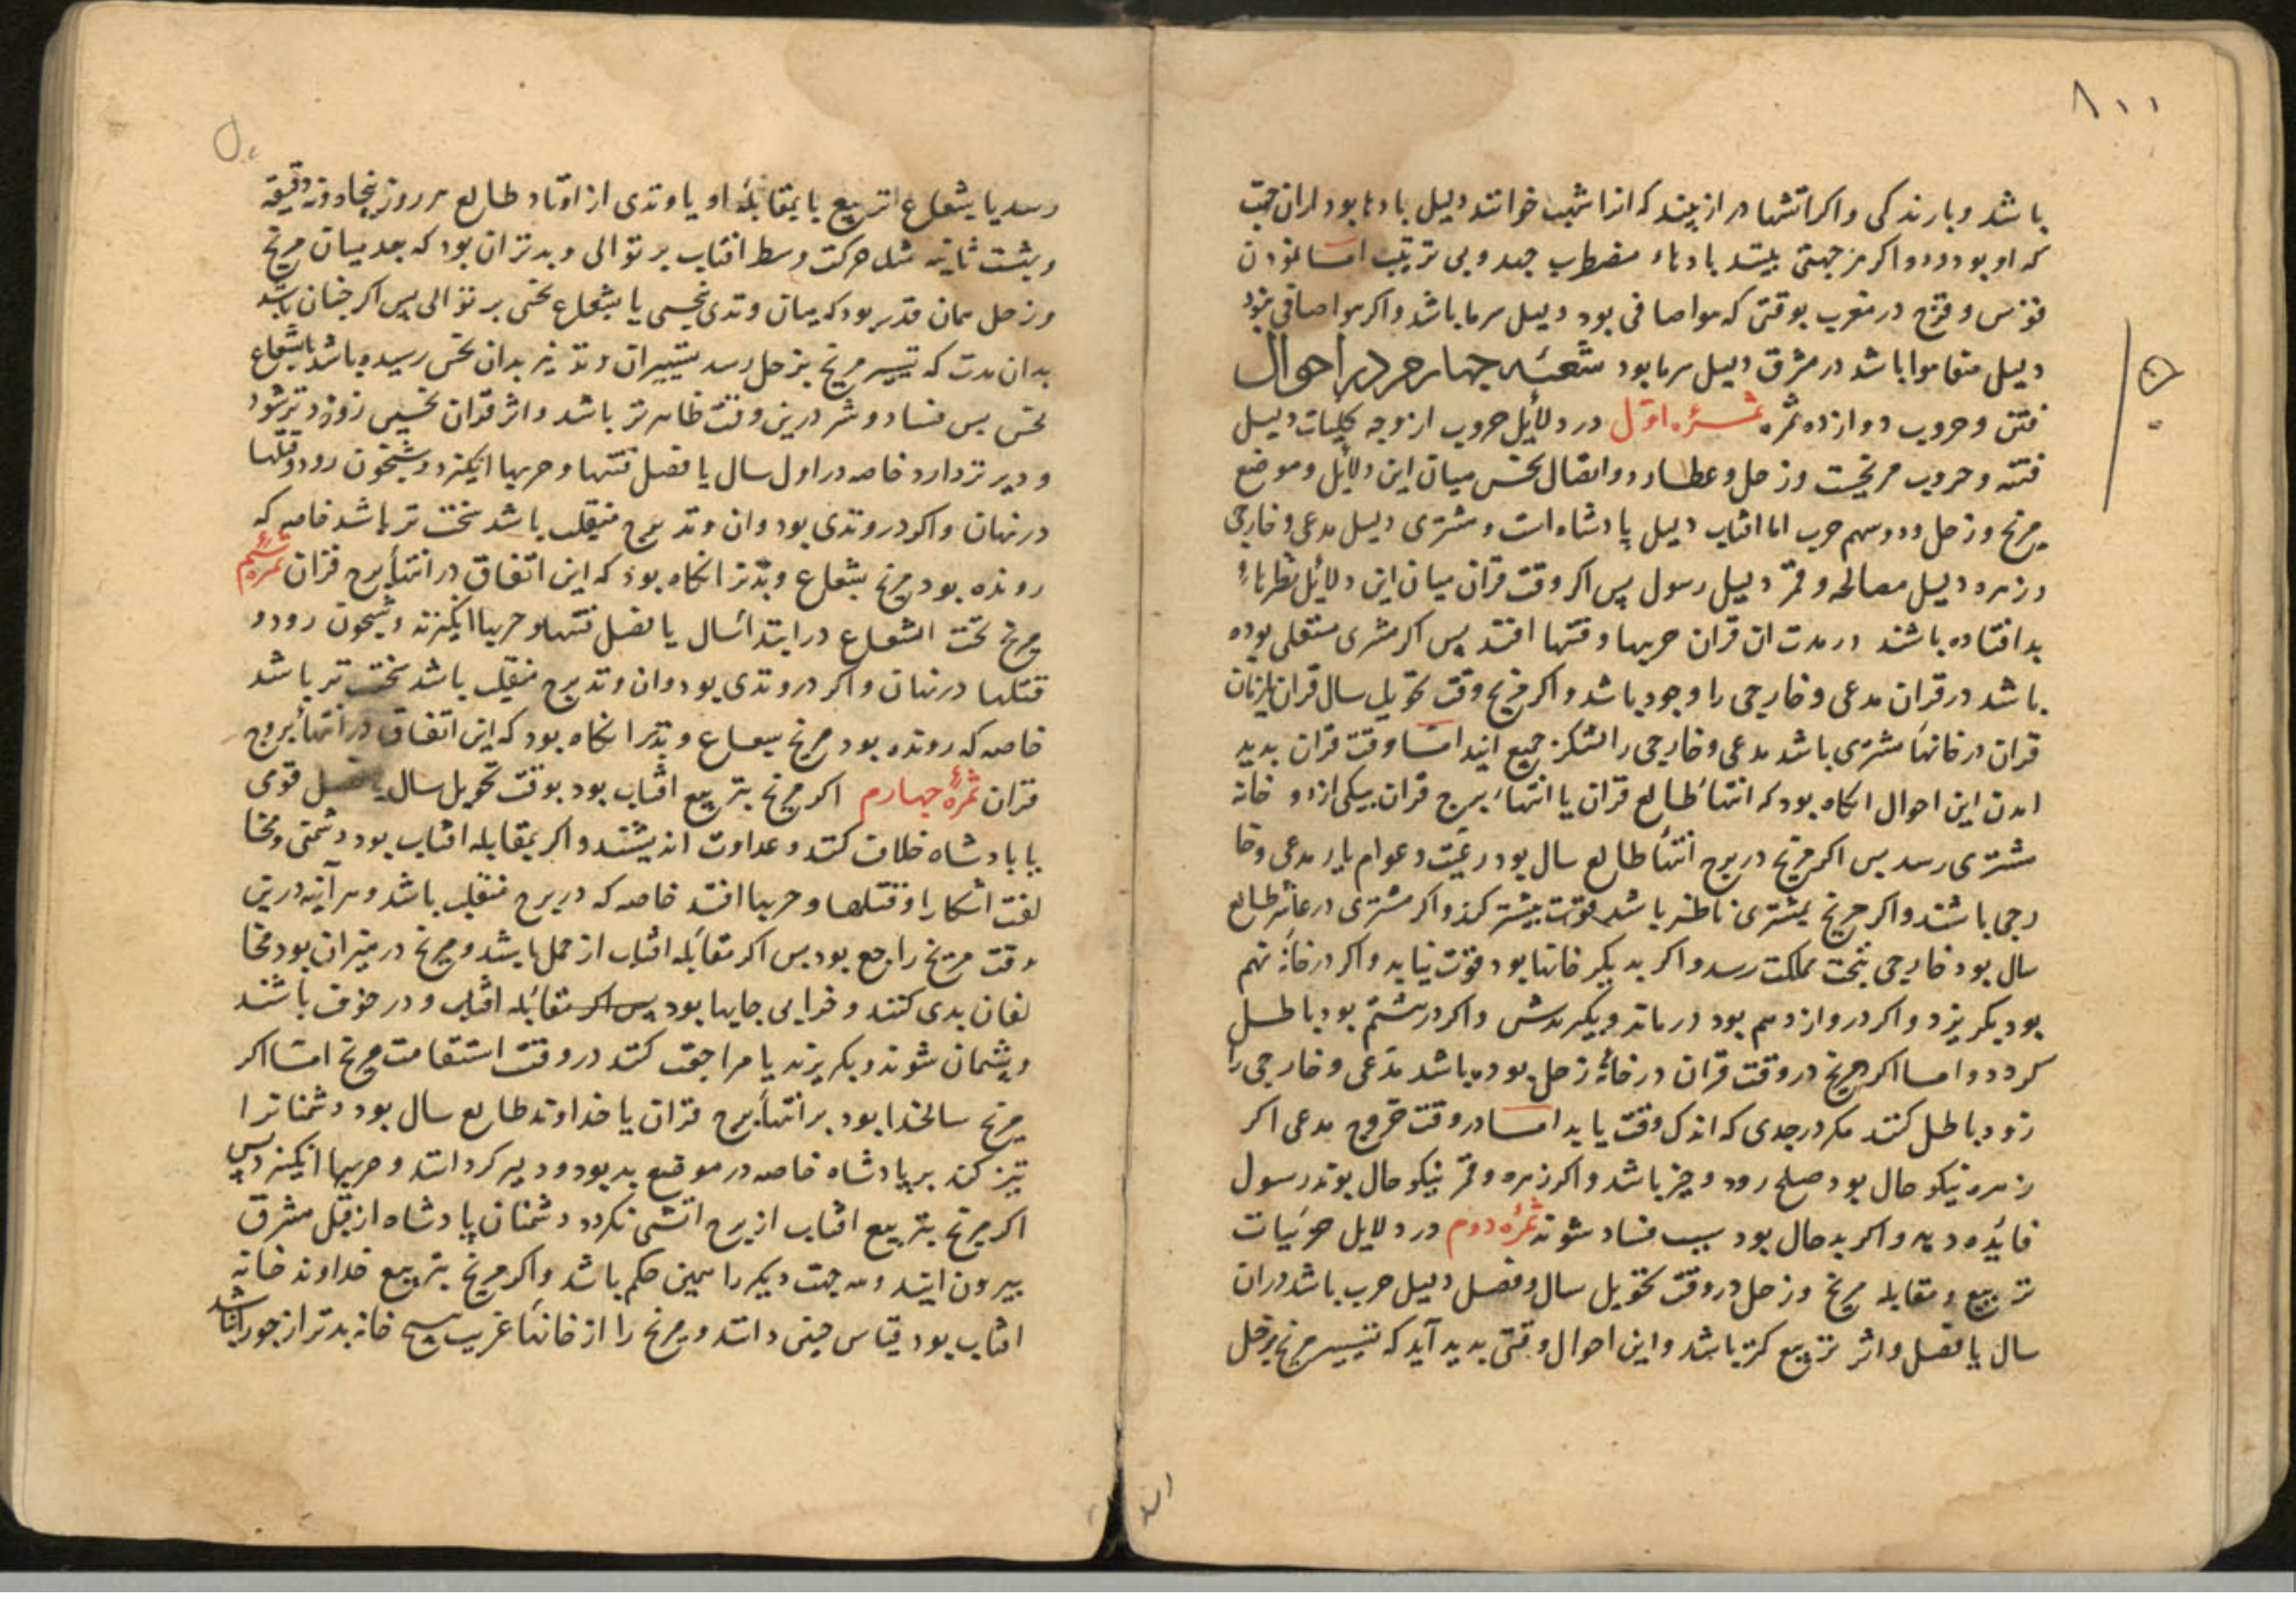 ۸۱۱
باشد و بارندکی و اکر اتشها دراز بیند که انرا شهب خوانند دلیل بادها بود ازان جهت
که او بود و اکر هر جهتی بیند بادهاء مضطرب جهد و بی ترتیب اما نمودن
قوس و قزح در مغرب بوقتی که هوا صافی بود دلیل سرما باشد و اکر هوا صافی نبود
دلیل باشد در مشرق دلیل سرما بود شعبه چهارم در احوال
فتن و حروب دوازده ثمره ثمره اول در دلایل حروب از وجه کلیات دلیل
فتنه و حروب مریخست و زحل و عطارد و اتصال نحس میان این دلایل و موضع
مریخ و زحل و دو سهم حرب اما افتاب دلیل پادشاه است و مشتری دلیل مدعی و خارجی
و زهره دلیل مصالحه و قمر دلیل رسول پس اکر وقت قران میان این دلایل نظرهاء
بد افتاده باشند در مدت ان قران حربها و فتنها افتد پس اکر مشتری مستعلی بوده
باشد در قران مدعی و خارجی را وجود باشد و اکر مریخ وقت تحویل سال قران
قران در خانهاء مشتری باشد مدعی و خارجی را لشکر جمیع ایند اما وقت قران بدید
امدن این احوال انکاه بود که انتهاء طالع قران یا انتهاء برج قران بیکی از دو خانه
مشتری رسد پس اکر مریخ در برج انتهاء طالع سال بود رعیت و عوام یار مدعی و خا
رجی باشند و اکر مریخ بمشتری ناظر باشد قوت بیشتر کند و اکر مشتری در عاشر طالع
سال بود خارجی بتخت مملکت رسد و اکر بدیکر خانها بود قوت نیابد و اکر در خانه نهم
بود بکریزد و اکر در دوازدهم بود درماند و بکیرندش و اکر در ششم بود باطل
کردد و اما اکر مریخ در وقت قران در خانه زحل بوده باشد مدعی و خارجی را
زود باطل کنند مکر در جدی که اندک وقت یابد اما در وقت خروج مدعی اکر
زهره نیکو حال بود صلح رود و خیر باشد و اکر زهره و قمر نیکو حال بوند رسول
فایده دهد و اکر بد حال بود سبب فساد شوند ثمره دوم در دلایل جزئیات
تربیع و مقابله مریخ و زحل در وقت تحویل سال و فصل دلیل حرب باشد دران
سال یا فصل و اثر تربیع کمتر باشد و این احوال وقتی بدید آید که تسییر مریخ بزحل
رسد یا بشعاع تربیع یا بمقابله او یا وتدی از اوتاد طالع هر روز پنجاه و نه دقیقه
و هشت ثانیه مثل حرکت وسط افتاب بر توالی و بدتر ان بود که بعد میان مریخ
و زحل همان قدر بود که میان وتدی نحسی یا بشعاع نحس بر توالی پس اکر چنان باشد
بدان مدت که تسییر مریخ بزحل رسد تسییر ان وتد نیز بدان نحس رسیده باشد یا بشعاع
نحس پس فساد و شر درین وقت ظاهر تر باشد و اثر قران نحسین زودتر شود
و دیرتر دارد خاصه در اول سال یا فصل فتنها و حربها انکیزد و شبخون رود و قتلها
در نهان و اکر در وتدی بود و ان وتد برج منقلب باشد سخت تر باشد خاصه که
رونده بود مریخ بشعاع و بدتر انکاه بود که این اتفاق در انتهاء برج قران ثمره سیم
مریخ تحت الشعاع در ابتداء سال یا فصل فتنها و حربها انکیزند و شبخون رود و
قتلها در نهان و اکر در وتدی بود و ان وتد برج منقلب باشد سخت تر باشد
خاصه که رونده بود مریخ بشعاع و بدتر انکاه بود که این اتفاق در انتهاء بروج
قران ثمره چهارم اکر مریخ بتربیع افتاب بود بوقت تحویل سال یا فصل قوی
با پادشاه خلاف کنند و عداوت اندیشند و اکر بمقابله افتاب بود دشمنی و مخا
لفت اشکارا و قتلها و حربها افتد خاصه که در برج منقلب باشد و هر آینه درین
وقت مریخ راجع بود پس اکر مقابله افتاب از حمل باشد و مریخ در میزان بود مخا
لفان بدی کنند و خرابی جایها بود پس اکر مقابله افتاب و در خوف باشند
و پشیمان شوند و بکریزند یا مراجعت کنند در وقت استقامت مریخ اما اکر
مریخ سالخدا بود بر انتهاء برج قران یا خداوند طالع سال بود دشمنانرا
تیز کند بر پادشاه خاصه در موضع بد بود و دیر کردانند و حربها انکیزد پس
اکر مریخ بتربیع افتاب از برج اتشی نکردد دشمنان پادشاه از قبل مشرق
بیرون ایند و سه جهت دیکر را همین حکم باشد و اکر مریخ بتربیع خداوند خانه
افتاب بود قیاس چنین دانند و مریخ را از خانهاء غریب هیچ خانه بدتر از جوزا نباشد